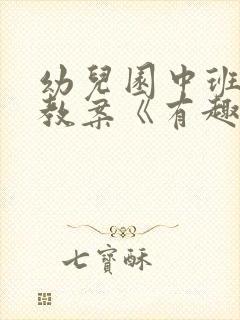 幼兒園中班
教案《有趣
七寶酥